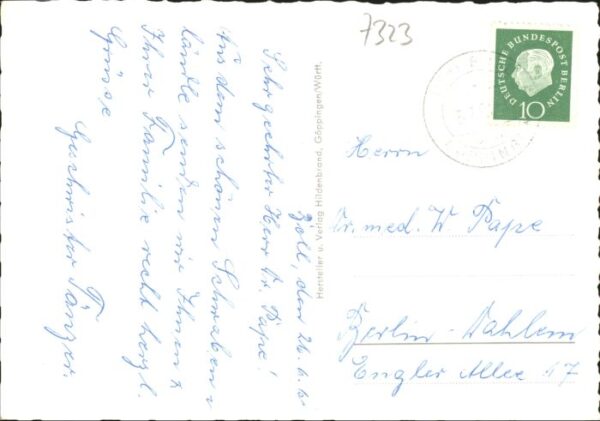 7323
DEUTSCHE BUNDESPOST BERLIN
10
Boll, den 26.6.
Sehrgeehrter Herr Dr. Pape!
Aus dem schönen Schwaben
ländle senden wir Ihnen &
Ihrer Familie recht herzl.
Grüsse
Geschwister Tänzer.
Hersteller u. Verlag Hildenbrand, Göppingen/Württ.
Herrn
Dr. med. W. Pape
Berlin-Dahlem
Engler Allee 17